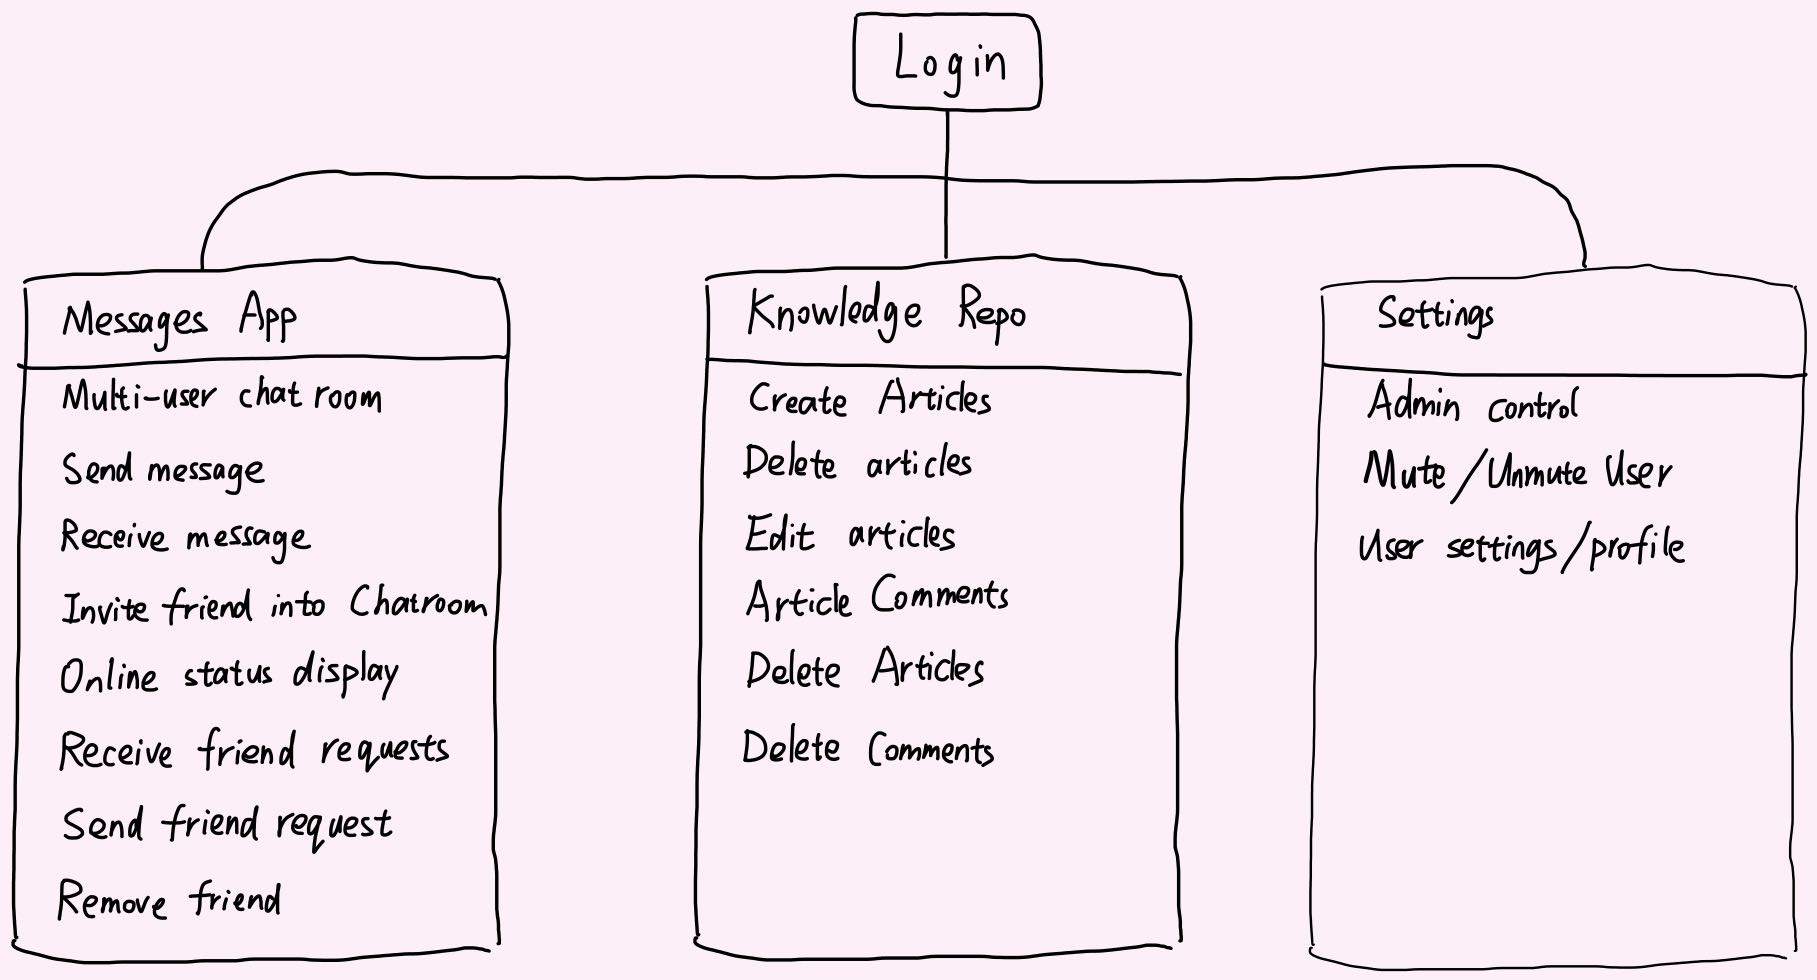 Login
Messages App
Multi-user chat room
Send message
Receive message
Invite friend into Chatroom
Online status display
Receive friend requests
Send friend request
Remove friend
Knowledge Repo
Create Articles
Delete articles
Edit articles
Article Comments
Delete Articles
Delete Comments
Settings
Admin control
Mute/Unmute User
User settings/profile